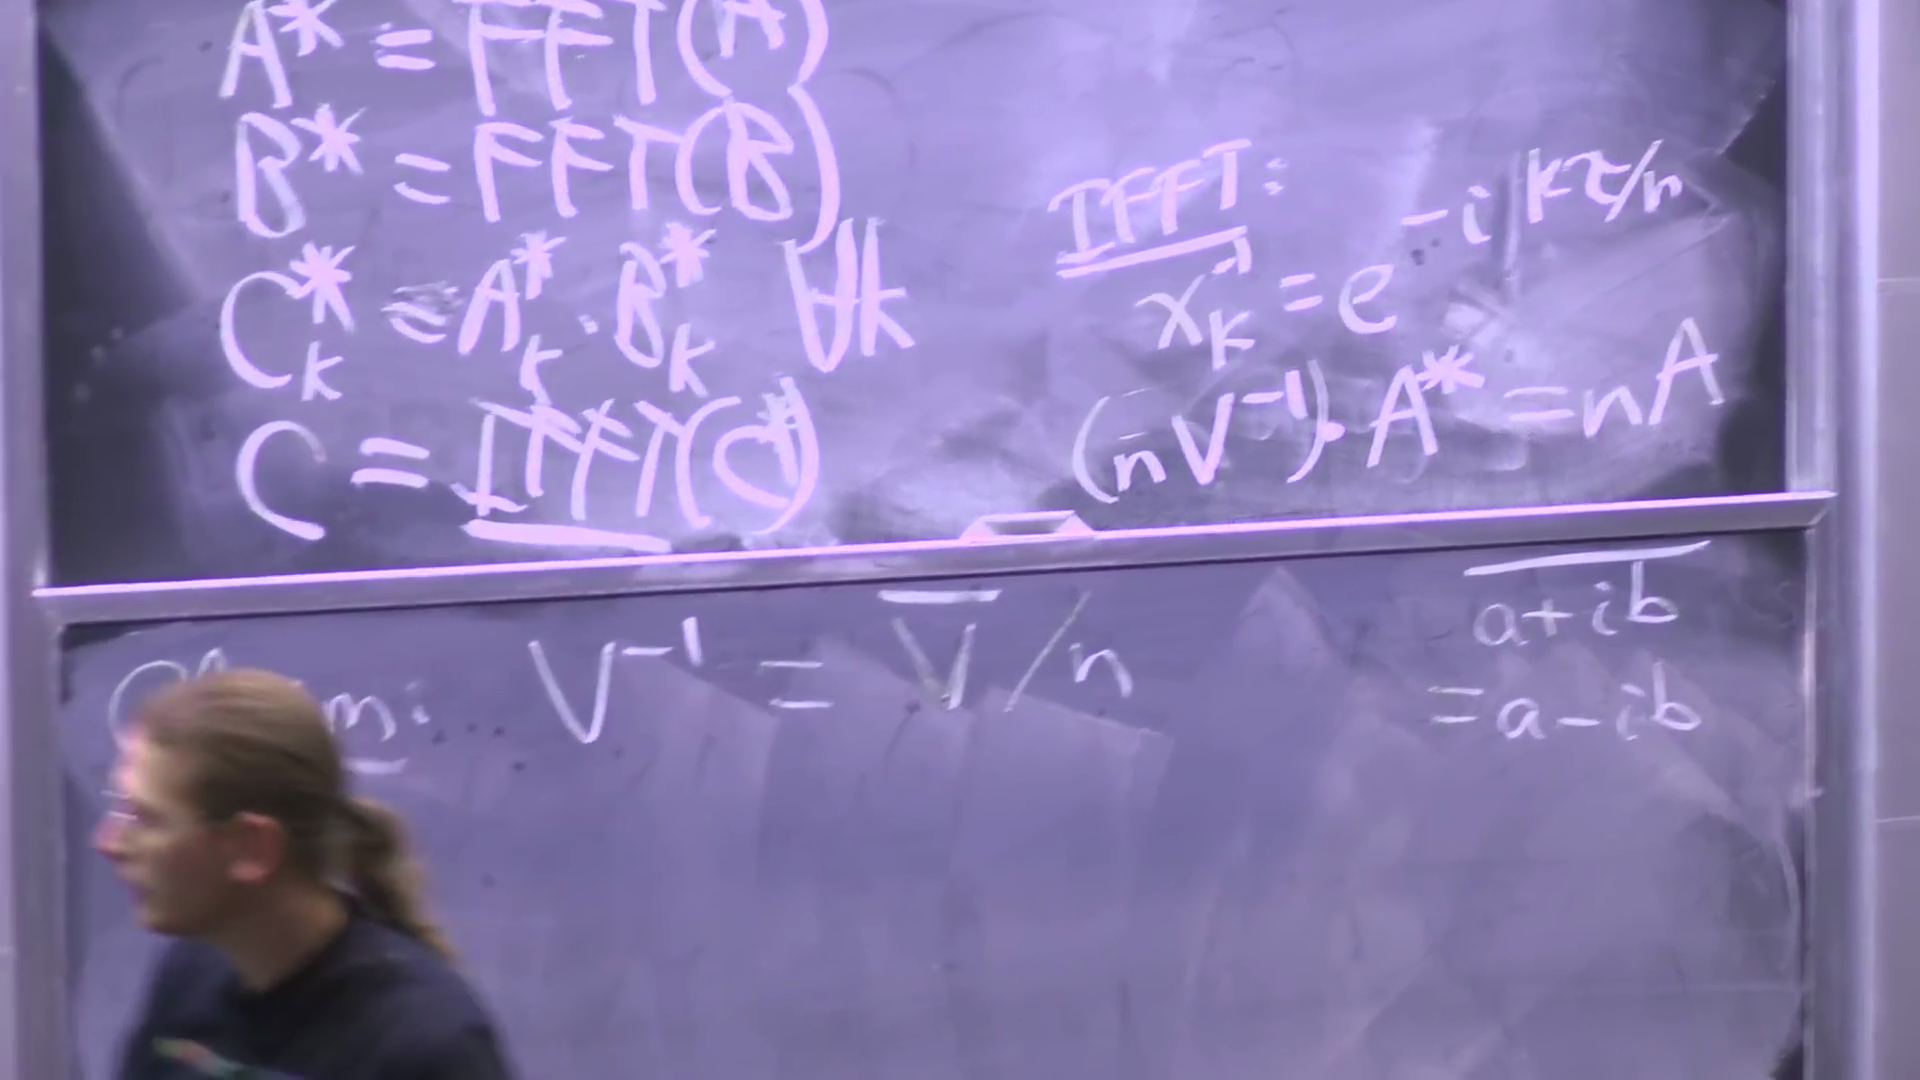 A* = FFT(A)
B* = FFT(B)
C*ₖ = A*ₖ · B*ₖ ∀k
C = IFFT(C*)
IFFT:
xₖ⁻¹ = e^(-ikτ/n)
(nV⁻¹) · A* = nA
V⁻¹ = V̅ / n
a+ib
= a-ib